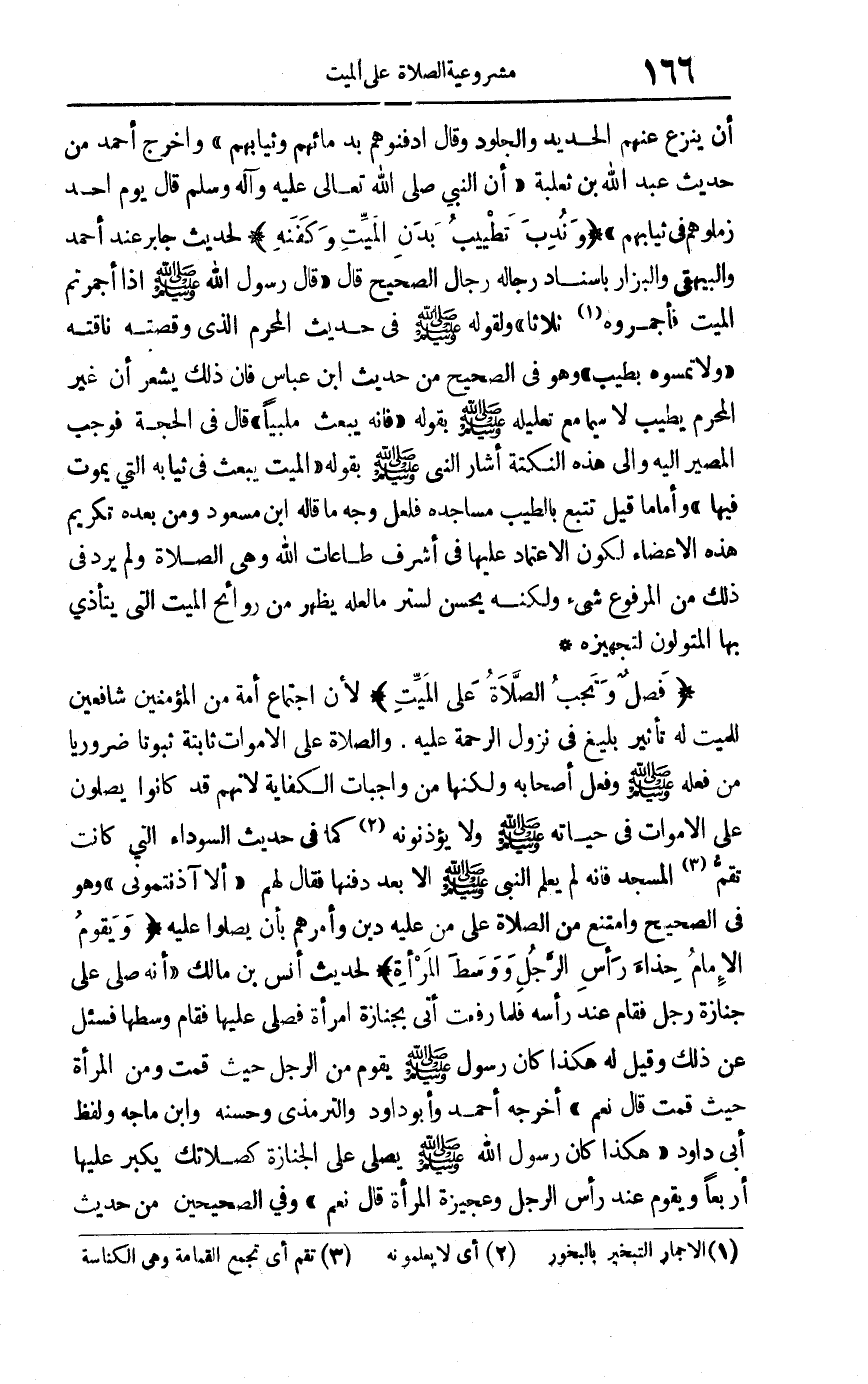 ١٦٦ مشروعية الصلاة على الميت
أن ينزع عنهم الحديد والجلود وقال ادفنوهم بدمائهم وثيابهم » واخرج أحمد من
حديث عبد الله بن ثعلبة « أن النبي صلى الله تعالى عليه وآله وسلم قال يوم احد
زملوهم فى ثيابهم » ﴿ وَنُدِبَ تَطْيِيبُ بَدَنِ المَيِّتِ وَكَفَنِهِ ﴾ لحديث جابر عند أحمد
والبيهقى والبزار باسناد رجاله رجال الصحيح قال « قال رسول الله ﷺ اذا أجمرتم
الميت فأجمروه (١) ثلاثا » ولقوله ﷺ فى حديث المحرم الذى وقصته ناقته
« ولا تمسوه بطيب » وهو فى الصحيح من حديث ابن عباس فان ذلك يشعر أن غير
المحرم يطيب لا سيما مع تعليله ﷺ بقوله « فانه يبعث ملبياً » قال فى الحجة فوجب
المصير اليه والى هذه النكتة أشار النبى ﷺ بقوله « الميت يبعث فى ثيابه التي يموت
فيها » وأما ما قيل تتبع بالطيب مساجده فلعل وجه ما قاله ابن مسعود ومن بعده تكريم
هذه الاعضاء لكون الاعتماد عليها فى أشرف طاعات الله وهى الصلاة ولم يرد فى
ذلك من المرفوع شىء ولكنه يحسن لستر ما لعله يظهر من روائح الميت التى يتأذي
بها المتولون لتجهيزه *
﴿ فَصلٌ وَتَجبُ الصَّلَاةُ عَلى المَيِّتِ ﴾ لأن اجتماع أمة من المؤمنين شافعين
للميت له تأثير بليغ فى نزول الرحمة عليه . والصلاة على الاموات ثابتة ثبوتا ضروريا
من فعله ﷺ وفعل أصحابه ولكنها من واجبات الكفاية لانهم قد كانوا يصلون
على الاموات فى حياته ﷺ ولا يؤذنونه (٢) كما فى حديث السوداء التي كانت
تقمُّ (٣) المسجد فانه لم يعلم النبى ﷺ الا بعد دفنها فقال لهم « ألا آذنتمونى » وهو
فى الصحيح وامتنع من الصلاة على من عليه دين وأمرهم بأن يصلوا عليه ﴿ وَيَقومُ
الإِمامُ حِذاءَ رَأسِ الرَّجُلِ وَوَسَطَ المَرْأةِ ﴾ لحديث أنس بن مالك « أنه صلى على
جنازة رجل فقام عند رأسه فلما رفعت أتى بجنازة امرأة فصلى عليها فقام وسطها فسئل
عن ذلك وقيل له هكذا كان رسول ﷺ يقوم من الرجل حيث قمت ومن المرأة
حيث قمت قال نعم » أخرجه أحمد وأبو داود والترمذى وحسنه وابن ماجه ولفظ
أبى داود « هكذا كان رسول الله ﷺ يصلى على الجنازة كصلاتك يكبر عليها
أربعاً ويقوم عند رأس الرجل وعجيزة المرأة قال نعم » وفي الصحيحين من حديث
(١) الاجمار التبخير بالبخور (٢) أى لا يعلمونه (٣) تقم أى تجمع القمامة وهى الكناسة